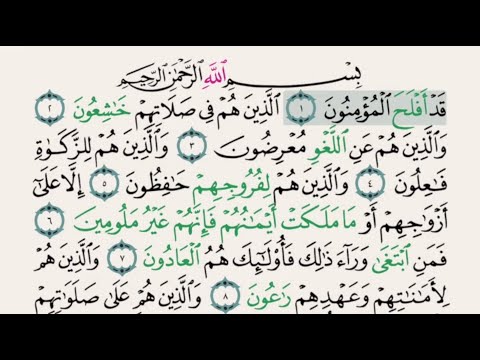 بِسْمِ اللَّهِ الرَّحْمَٰنِ الرَّحِيمِ
قَدْ أَفْلَحَ الْمُؤْمِنُونَ ١ الَّذِينَ هُمْ فِي صَلَاتِهِمْ خَاشِعُونَ ٢
وَالَّذِينَ هُمْ عَنِ اللَّغْوِ مُعْرِضُونَ ٣ وَالَّذِينَ هُمْ لِلزَّكَوٰةِ
فَاعِلُونَ ٤ وَالَّذِينَ هُمْ لِفُرُوجِهِمْ حَافِظُونَ ٥ إِلَّا عَلَىٰ
أَزْوَاجِهِمْ أَوْ مَا مَلَكَتْ أَيْمَانُهُمْ فَإِنَّهُمْ غَيْرُ مَلُومِينَ ٦
فَمَنِ ابْتَغَىٰ وَرَاءَ ذَٰلِكَ فَأُولَٰئِكَ هُمُ الْعَادُونَ ٧ وَالَّذِينَ هُمْ
لِأَمَانَاتِهِمْ وَعَهْدِهِمْ رَاعُونَ ٨ وَالَّذِينَ هُمْ عَلَىٰ صَلَوَاتِهِمْ